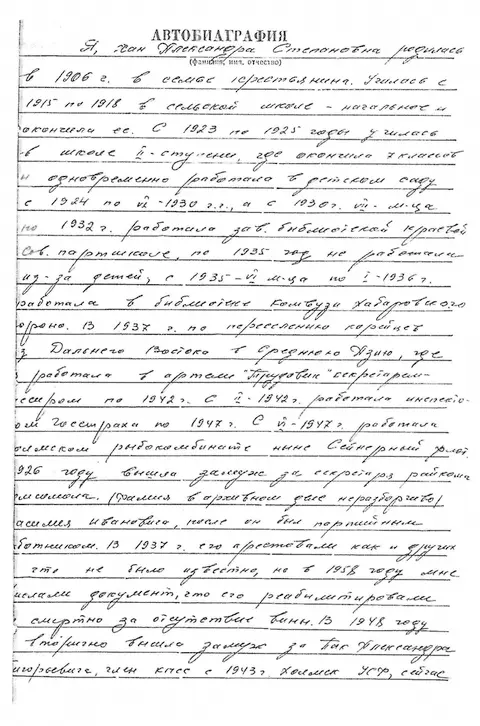 АВТОБИАГРАФИЯ
Я, Хан Александра Степановна родилась
(фамилия, имя, отчество)
в 1906 г. в семье крестьянина. Училась с
1915 по 1918 в сельской школе - начальное и
окончила ее. С 1923 по 1925 годы училась
в школе II-ступени, где окончила 7 классов
и одновременно работала в детском саду
с 1924 по VI-1930 г.г., а с 1930 г. VII-м-ца
по 1932 г. работала зав. библиотекой краевой
сов. партшколе, по 1935 год не работала
из-за детей, с 1935-VI м-ца по I-1936 г.
работала в библиотеке комвуза Хабаровского
ороно. В 1937 г. по переселению корейцев
з Дальнего Востока в Среднюю Азию, где
работала в артели "Трудовик" секретарем-
ссиром по 1942 г. С I-1942 г. работала инспекто
ом госстраха по 1947 г. С VI-1947 г. работала
олмском рыбокомбинате ныне Сейнерный флот.
926 году вышла замуж за секретаря райкома
мсомола. (фамилия в архивном деле неразборчиво)
асилия Ивановича, после он был партийным
ботником. В 1937 г. его арестовали как и других
что не было известно, но в 1958 году мне
ислали документ, что его реабилитировали
смертно за отсутствие вины. В 1948 году
вторично вышла замуж за Пак Александра
игорьевича, член КПСС с 1943 г. Холмск УСФ, сейчас